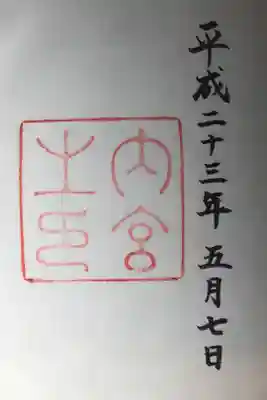 平成二十三年五月七日
内宮
之印